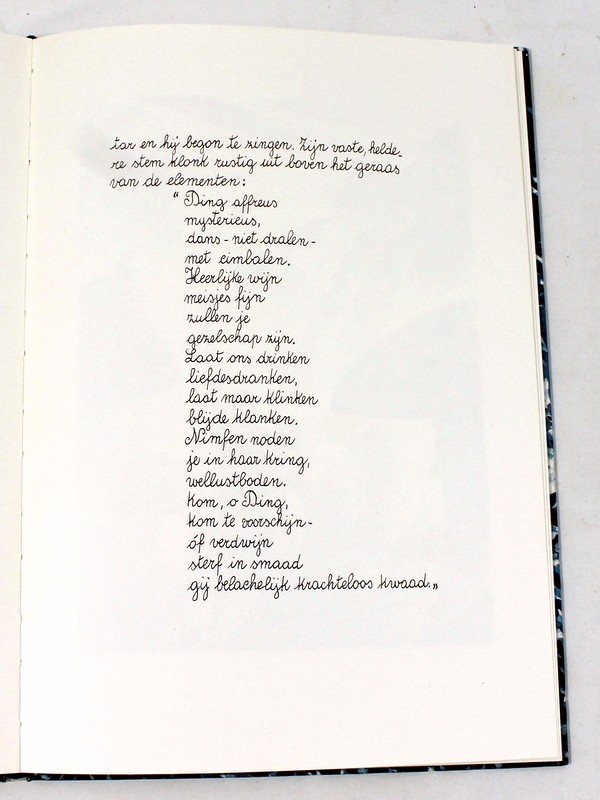 tar en hij begon te zingen. Zijn vaste, helde-
re stem klonk rustig uit boven het geraas
van de elementen:
“Ding affreus
mysterieus,
dans - niet dralen -
met cimbalen.
Heerlijke wijn
meisjes fijn
zullen je
gezelschap zijn.
Laat ons drinken
liefdesdranken,
laat maar klinken
blijde klanken.
Nimfen noden
je in haar kring,
wellustboden.
Kom, o Ding,
kom te voorschijn -
óf verdwijn
sterf in smaad
gij belachelijk krachteloos kwaad.„